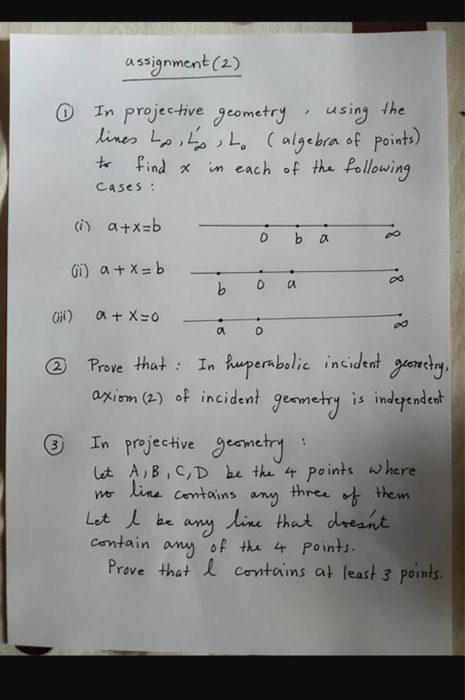 assignment (2)
① In projective geometry, using the
lines L∞, L'∞, L₀ (algebra of points)
to find x in each of the following
cases:
(i) a+x=b
0 b a ∞
(ii) a + x = b
b 0 a ∞
(iii) a + x = 0
a 0 ∞
② Prove that : In huperabolic incident geometry,
axiom (2) of incident geometry is independent
③ In projective geometry :
Let A, B, C, D be the 4 points where
no line contains any three of them
Let l be any line that doesn't
contain any of the 4 points.
Prove that l contains at least 3 points.